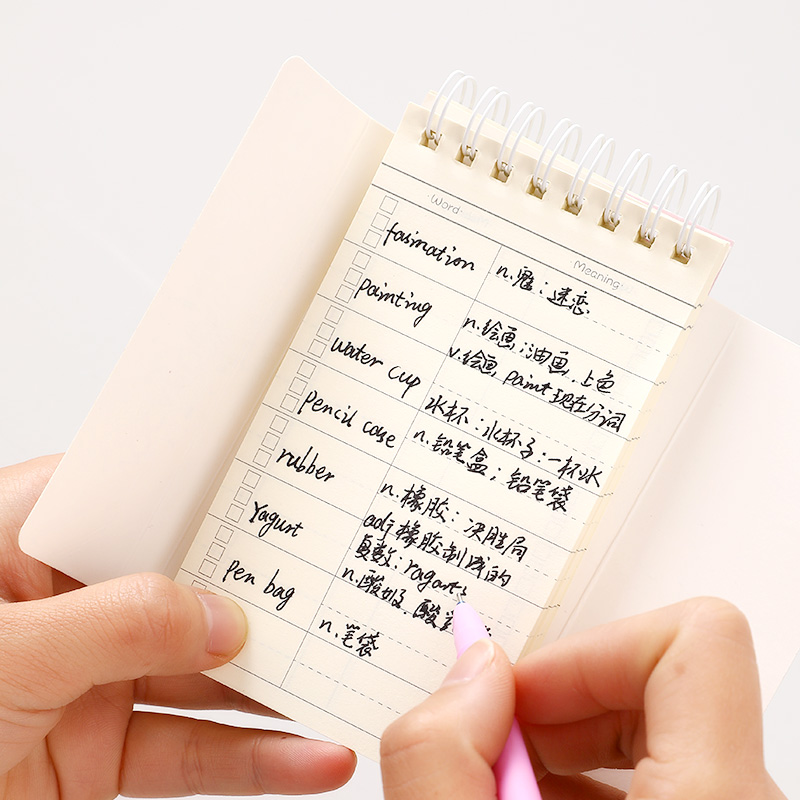 Word
Meaning
fasination
n.魅；迷恋
painting
n.绘画；油画，上色
v.绘画，paint现在分词
water cup
水杯：水杯子：一杯水
pencil case
n.铅笔盒；铅笔袋
rubber
n.橡胶：决胜局
adj橡胶制成的
Yagurt
复数：ragurts
n.酸奶，酸
pen bag
n.笔袋